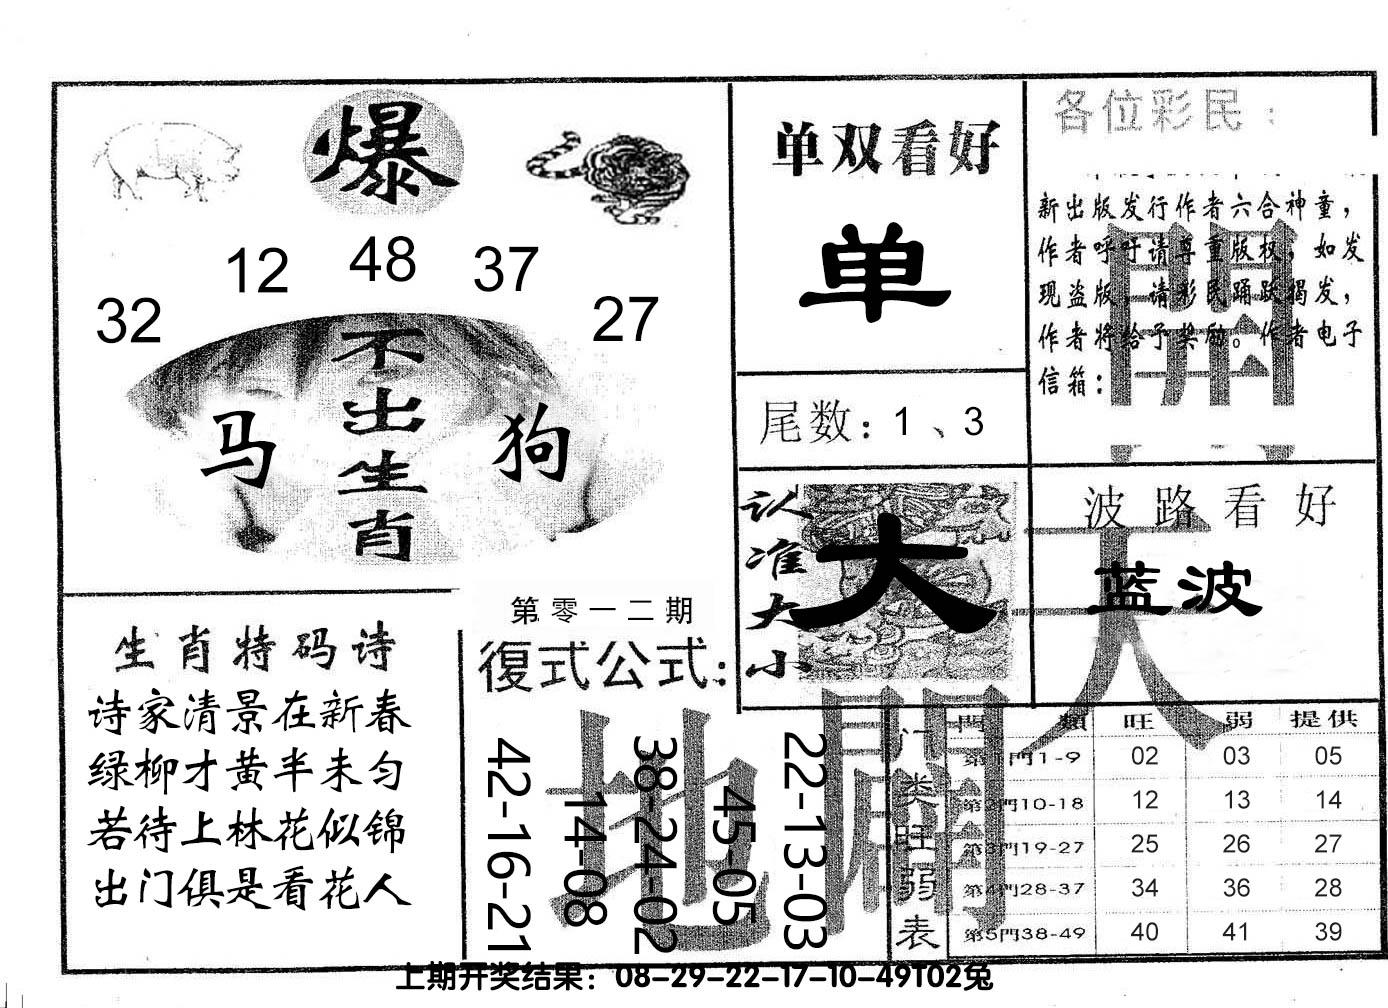 爆
32 12 48 37 27
不出生肖
马 狗
单双看好
单
尾数：1、3
各位彩民：
新出版发行作者六合神童，
作者呼吁请尊重版权，如发
现盗版，请彩民踊跃揭发，
作者将给予奖励。作者电子
信箱：
認准大小
大
波路看好
蓝波
天
開
地
閘
生肖特码诗
诗家清景在新春
绿柳才黄半未匀
若待上林花似锦
出门俱是看花人
第零一二期
復式公式：
42-16-21
14-08
38-24-02
45-05
22-13-03
门类旺弱表
門類 旺 弱 提供
第1門1-9 02 03 05
第2門10-18 12 13 14
第3門19-27 25 26 27
第4門28-37 34 36 28
第5門38-49 40 41 39
上期开奖结果：08-29-22-17-10-49T02兔